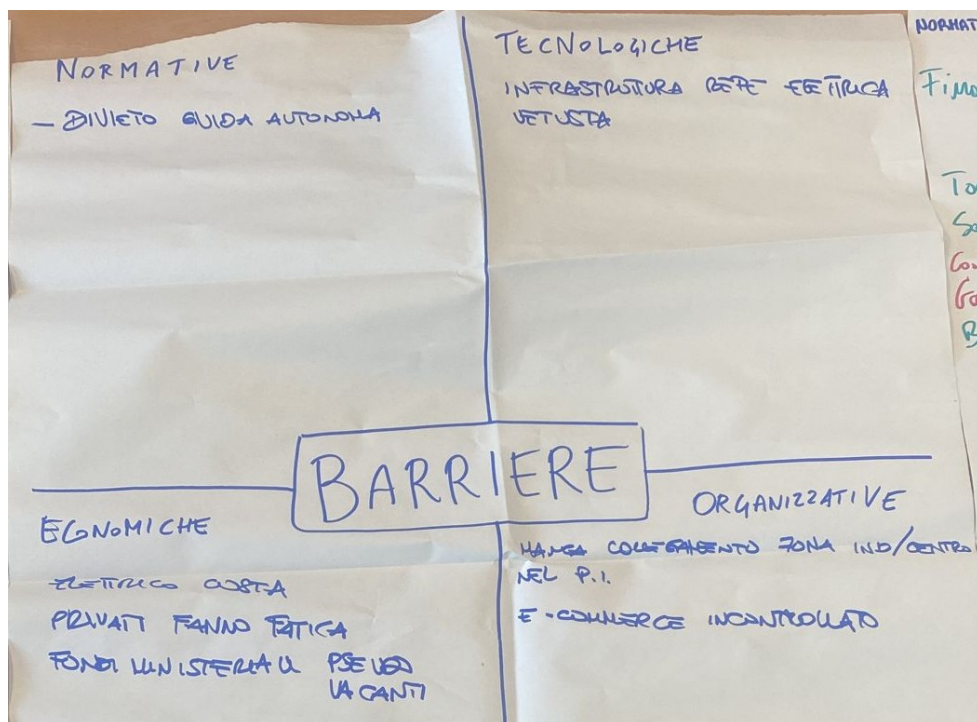 NORMATIVE
- DIVIETO GUIDA AUTONOMA
TECNOLOGICHE
INFRASTRUTTURA RETE ELETTRICA
VETUSTA
BARRIERE
ECONOMICHE
ELETTRICO COSTA
PRIVATI FANNO FATICA
FONDI MINISTERIALI PSEUDO
VACANTI
ORGANIZZATIVE
MANCA COLLEGAMENTO ZONA IND/CENTRO
NEL P.I.
E-COMMERCE INCONTROLLATO
NORMAT